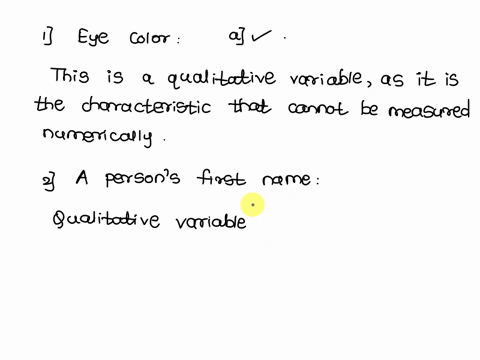 1] Eye color: a] ✓.
This is a qualitative variable, as it is
the characteristic that cannot be measured
numerically.
2] A person's first name:
Qualitative variable